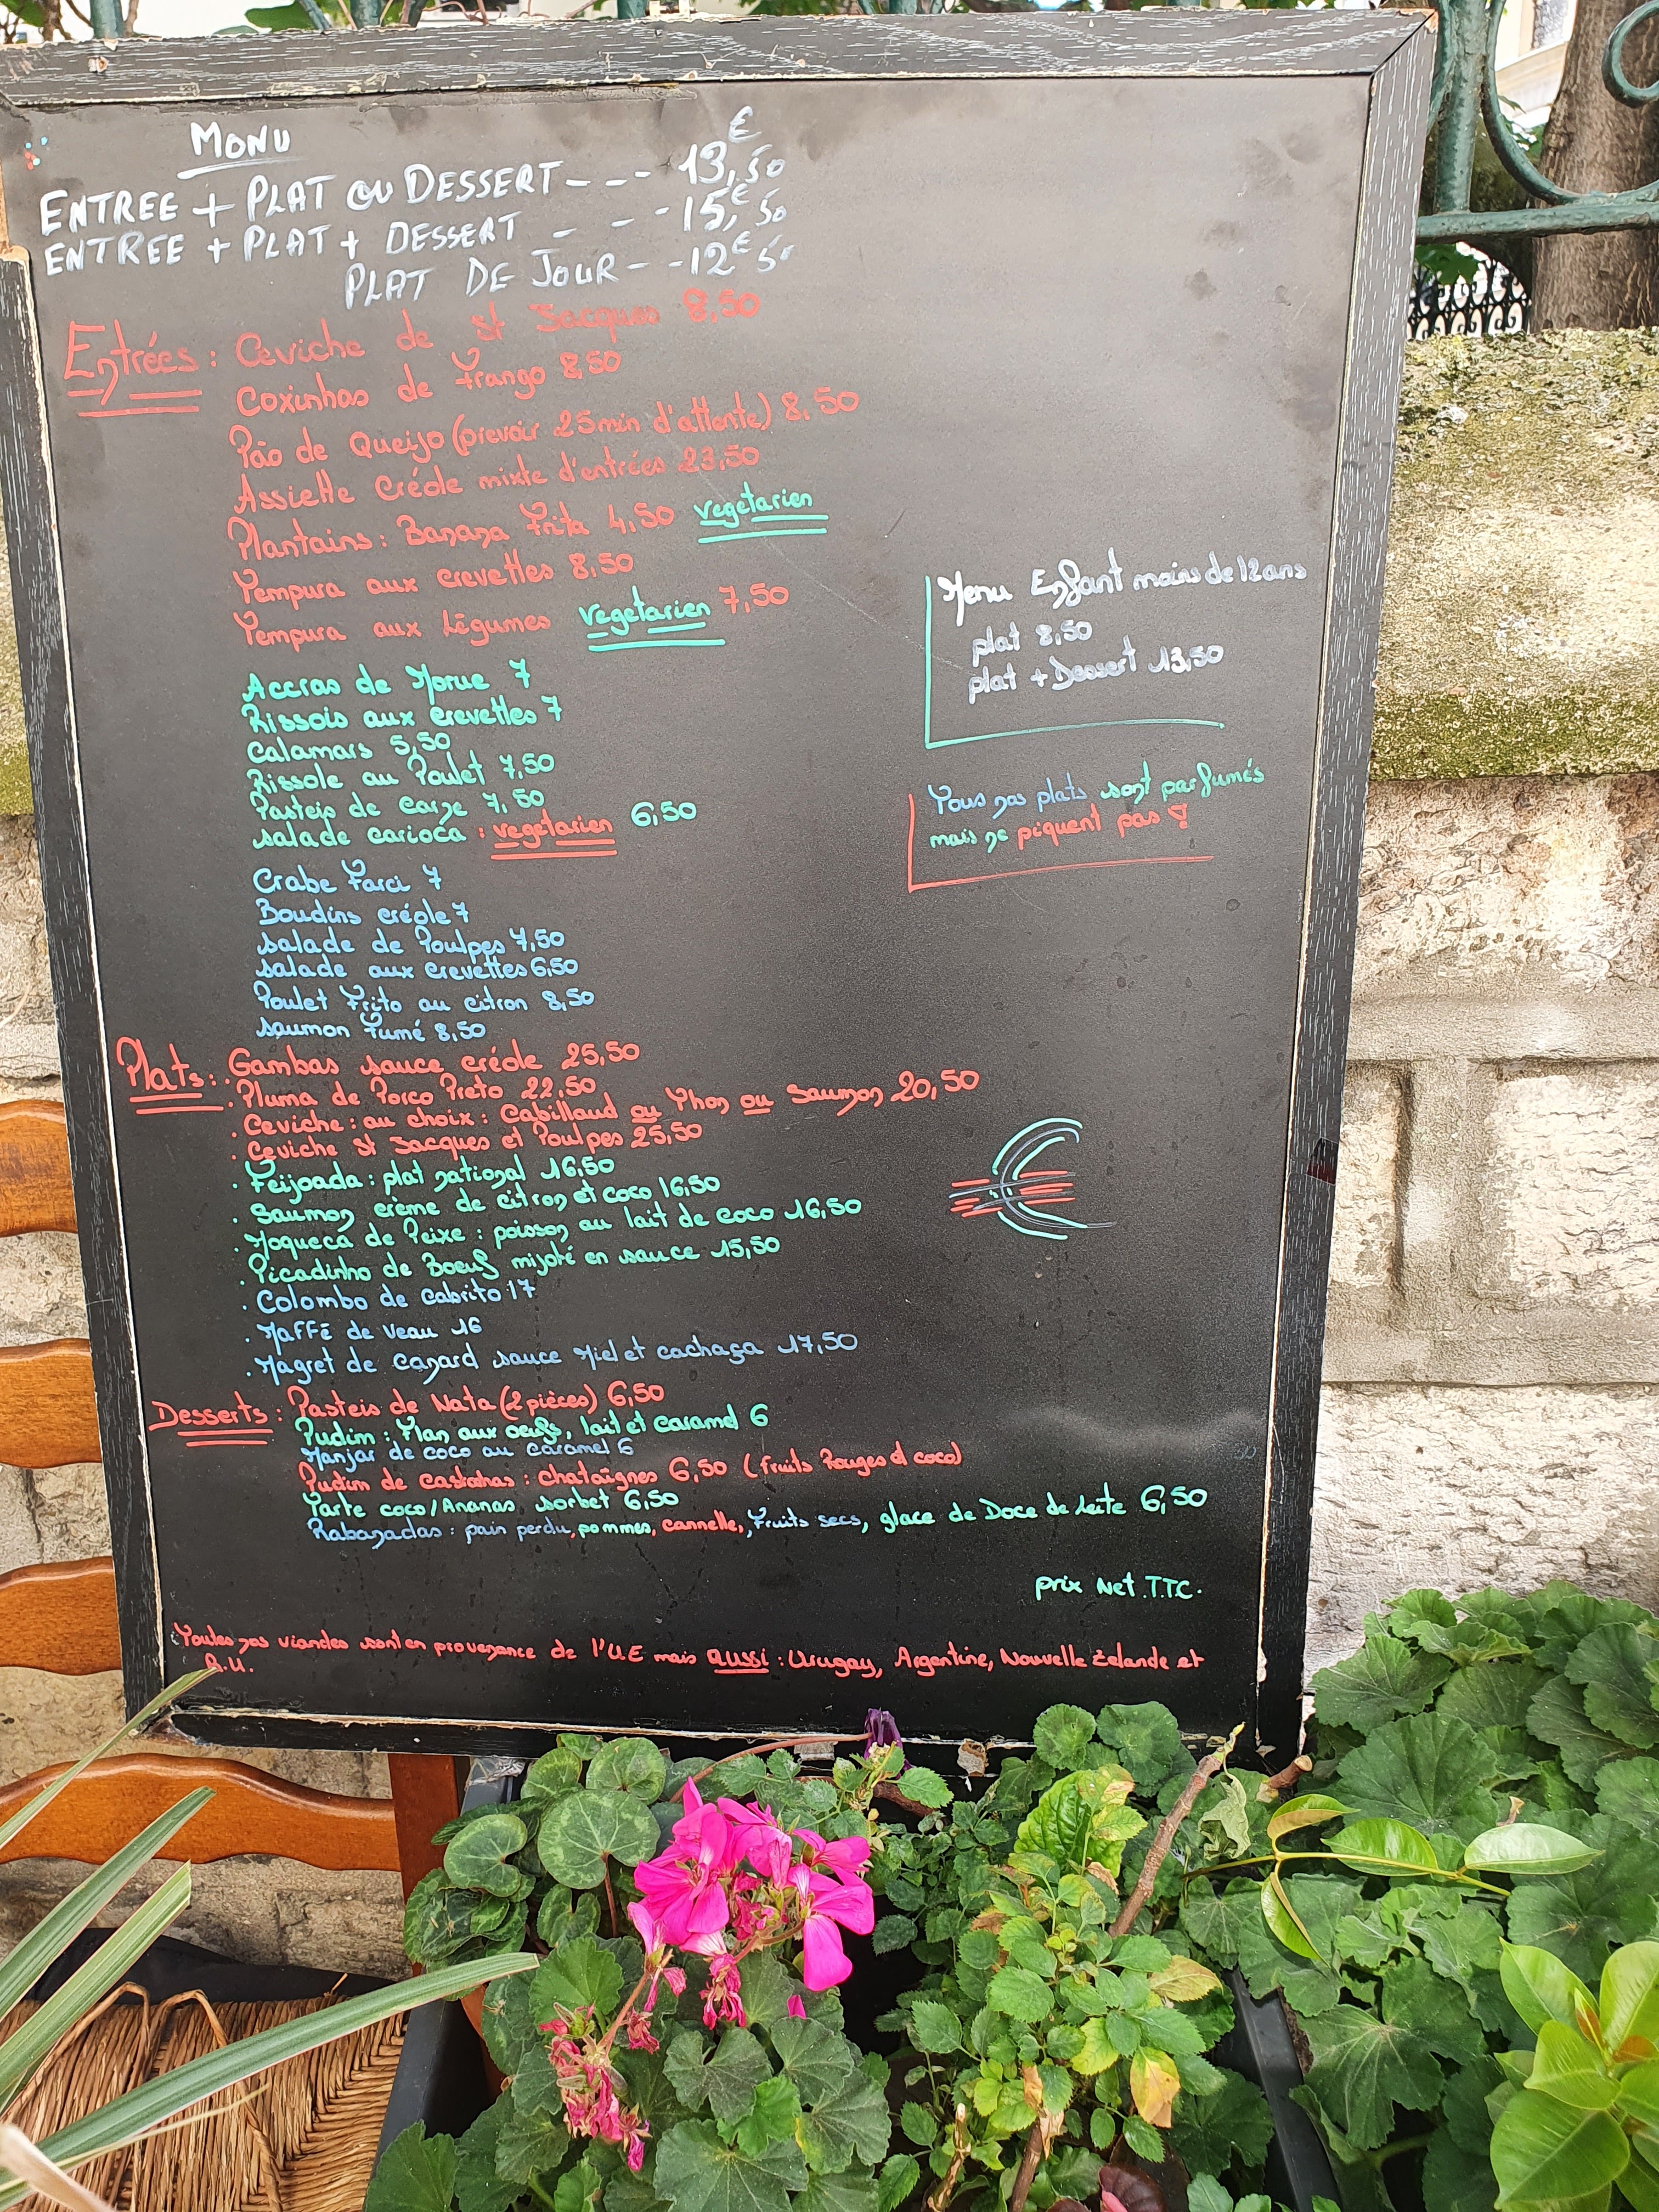 MONU
ENTREE + PLAT OU DESSERT - - - 13,€50
ENTREE + PLAT + DESSERT - - - 15,€50
PLAT DE JOUR - - 12€50
Entrées : Ceviche de St Jacques 8,50
Coxinhas de Frango 8,50
Pão de Queijo (prevoir 25min d'attente) 8,50
Assiette Créole mixte d'entrées 23,50
Plantains : Banana Frita 4,50 vegetarien
Tempura aux crevettes 8,50
Tempura aux Légumes vegetarien 7,50
Accras de Morue 7
Rissois aux crevettes 7
Calamars 5,50
Rissole au Poulet 7,50
Pasteis de carne 7,50
salade carioca : vegetarien 6,50
Crabe Farci 7
Boudins créole 7
salade de Poulpes 7,50
salade aux crevettes 6,50
Poulet Frito au citron 8,50
saumon Fumé 8,50
Menu Enfant moins de 12 ans
plat 8,50
plat + Dessert 13,50
Tous nos plats sont parfumés
mais ne piquent pas !
Plats : . Gambas sauce créole 25,50
. Pluma de Porco Preto 22,50
. Ceviche : au choix : Cabillaud ou Thon ou Saumon 20,50
. Ceviche St Jacques et Poulpes 25,50
. Feijoada : plat national 16,50
. Saumon crème de citron et coco 16,50
. Moqueca de Peixe : poisson au lait de coco 16,50
. Picadinho de Boeuf mijoté en sauce 15,50
. Colombo de cabrito 17
. Maffé de veau 16
. Magret de canard sauce Miel et cachaça 17,50
Desserts : Pasteis de Nata (2 pièces) 6,50
Pudim : Flan aux oeufs, lait et caramel 6
Manjar de coco au caramel 6
Pudim de castahas : chataignes 6,50 (fruits Rouges et coco)
Tarte coco/Ananas sorbet 6,50
Rabanadas : pain perdu, pommes, cannelle, Fruits secs, glace de Doce de Leite 6,50
prix Net T.T.C.
Toutes nos viandes sont en provenance de l'UE mais aussi : Urugay, Argentine, Nouvelle Zélande et
R.U.